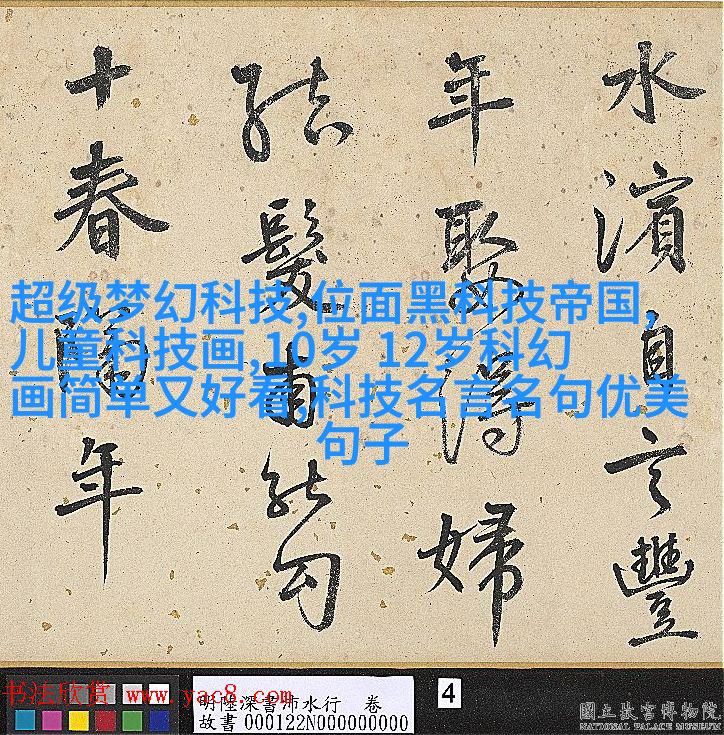 水濱自言豐
年娶得婦
結髮甫能勾
十春年
超级梦幻科技,位面黑科技帝国,
儿童科技画,10岁 12岁科幻
画简单又好看,科技名言名句优美
句子
书法欣赏 www.yac8.com
明陸深書水行 卷
故書 000122N000000000
4
國立故宮博物院
NATIONAL PALACE MUSEUM